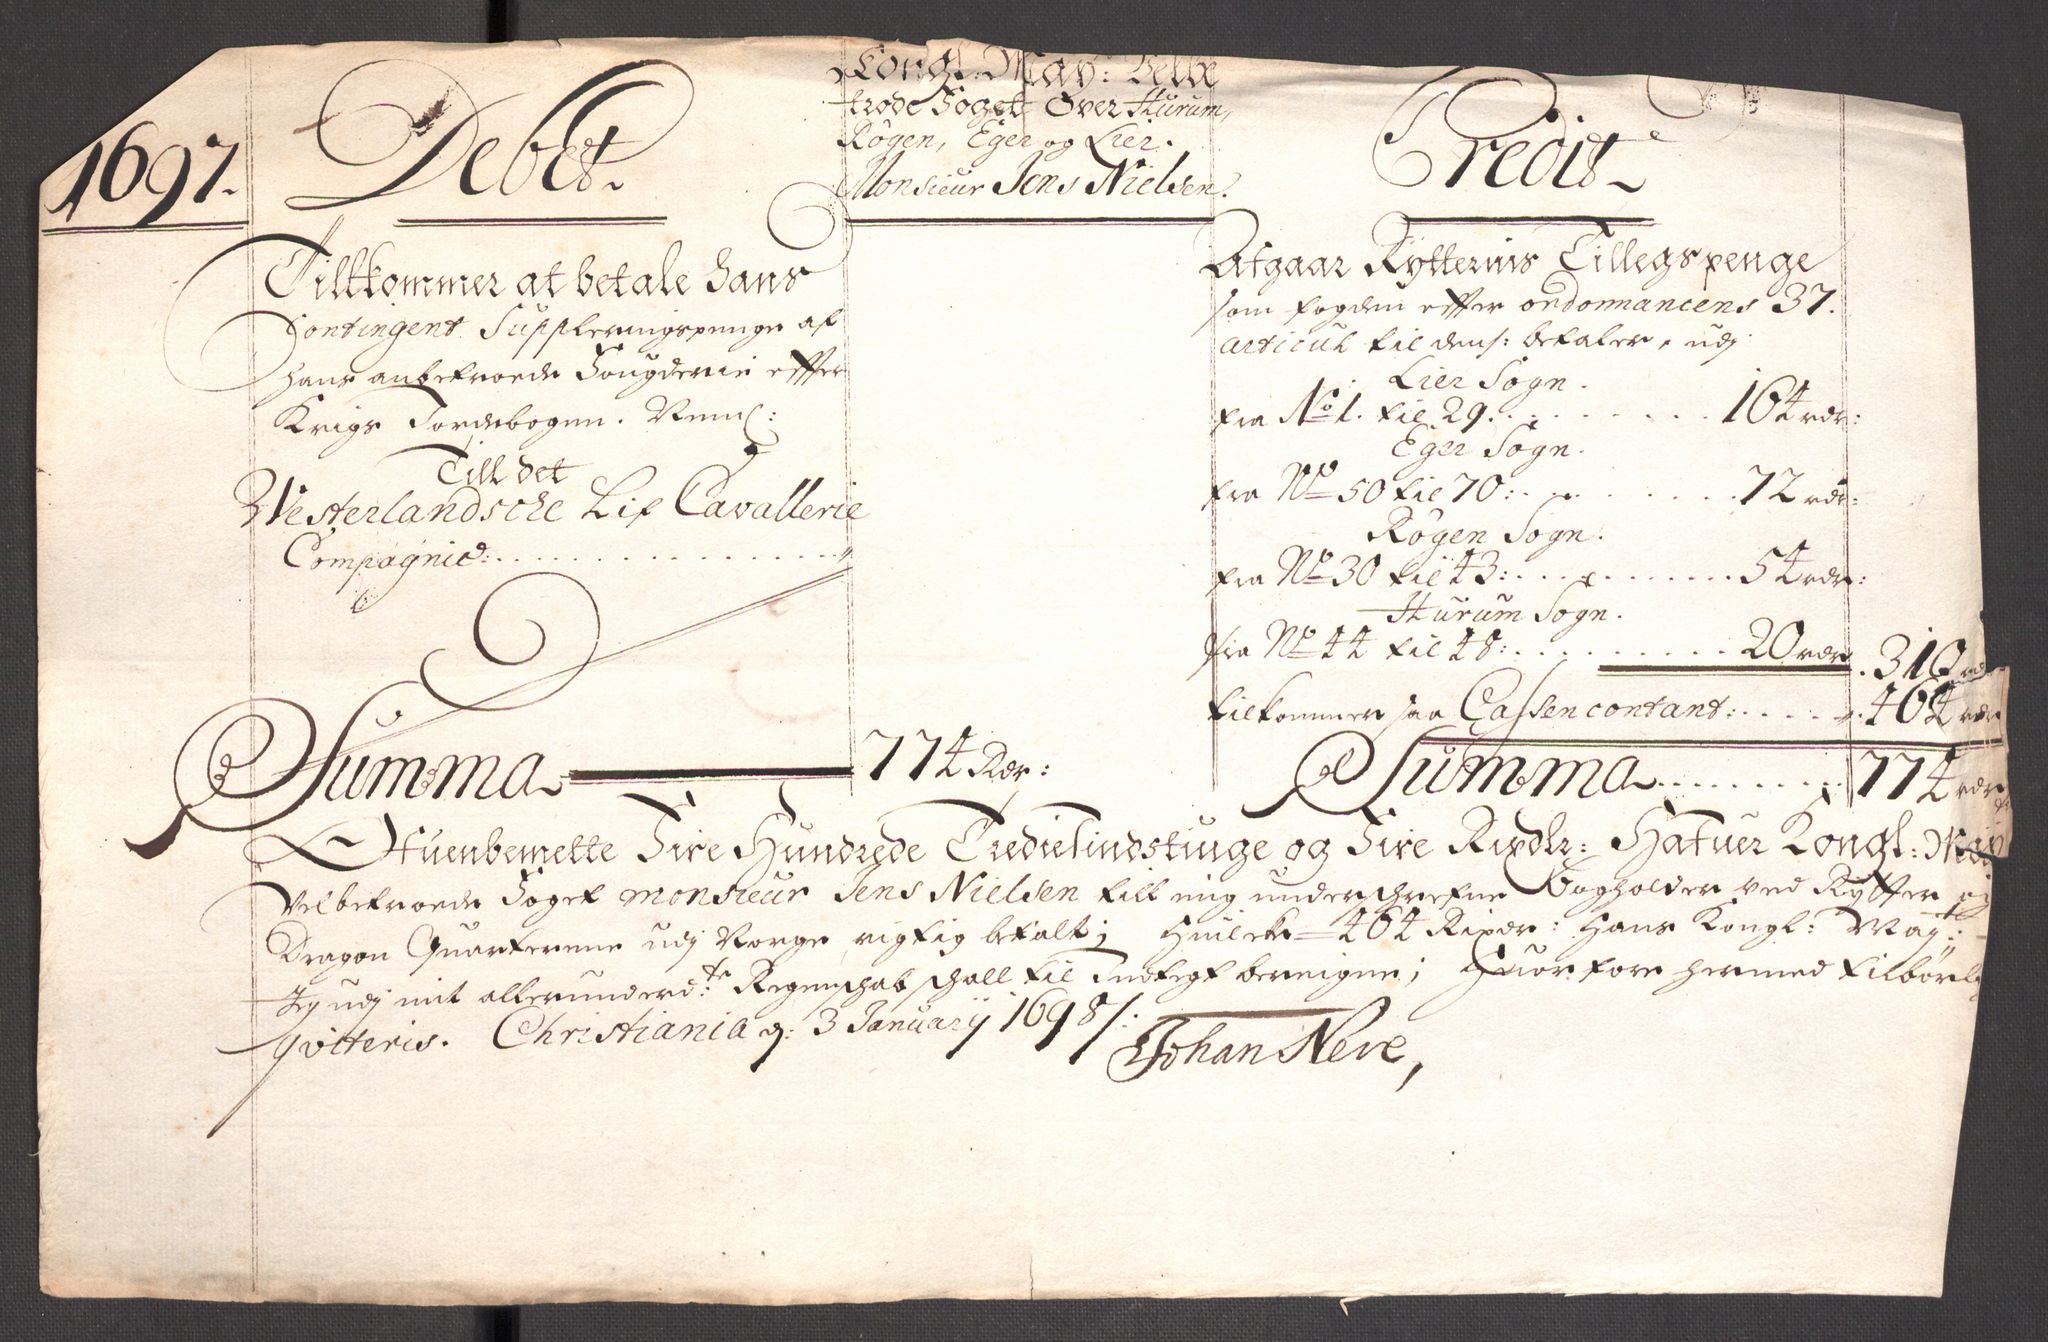 1697.
Debet
Kongl: May: Velbe
trode Foget Over Hurum,
Røgen, Eger og Lier.
Monsieur Jens Nielsen.
Credit
Tillkommer at betale hans
Contingent Suppleringspenge af
hans anbetroede Fougderie effter
Krigs Jordebogen. Neml:
Till det
Westerlandsche Lif Cavallerie
Compagnie:
Summa 774 Rdr:
Afgaar Rytternis Tillegspenge
som fogden effter ordonnancens 37.
articul til dens: betaler, udj
Lier Sogn.
fra No 1. til 29. 164 rdr:
Eger Sogn.
fra No 50 til 70: 72 rdr:
Røgen Sogn.
fra No 30 til 43: 54 rdr:
Hurum Sogn.
fra No 44 til 48: 20 rdr 310 rdr
tilkommer saa Cassen contant: 464 rdr
Summa 774 rdr
Ofuenbemelte Fire Hundrede Trediesindstiuge og Fire Rixdlr: Hafuer Kongl: May
Velbetroede Foget monsieur Jens Nielsen till mig underschrefne Bogholder ved Rytter og
Dragon Quarterene udj Norge rigtig betalt; Huilcke 464 Rixdr: Hans Kongl: May:tt
Jeg udj mit allerunderd:te Regenschab schall til Indtegt bereigne; Huorfore hermed tilbørlig
qvitteris. Christiania d: 3 January 1698/:
Johan Nere,